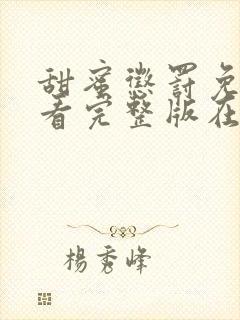 甜蜜懲罰免
看完整版在
楊秀峰